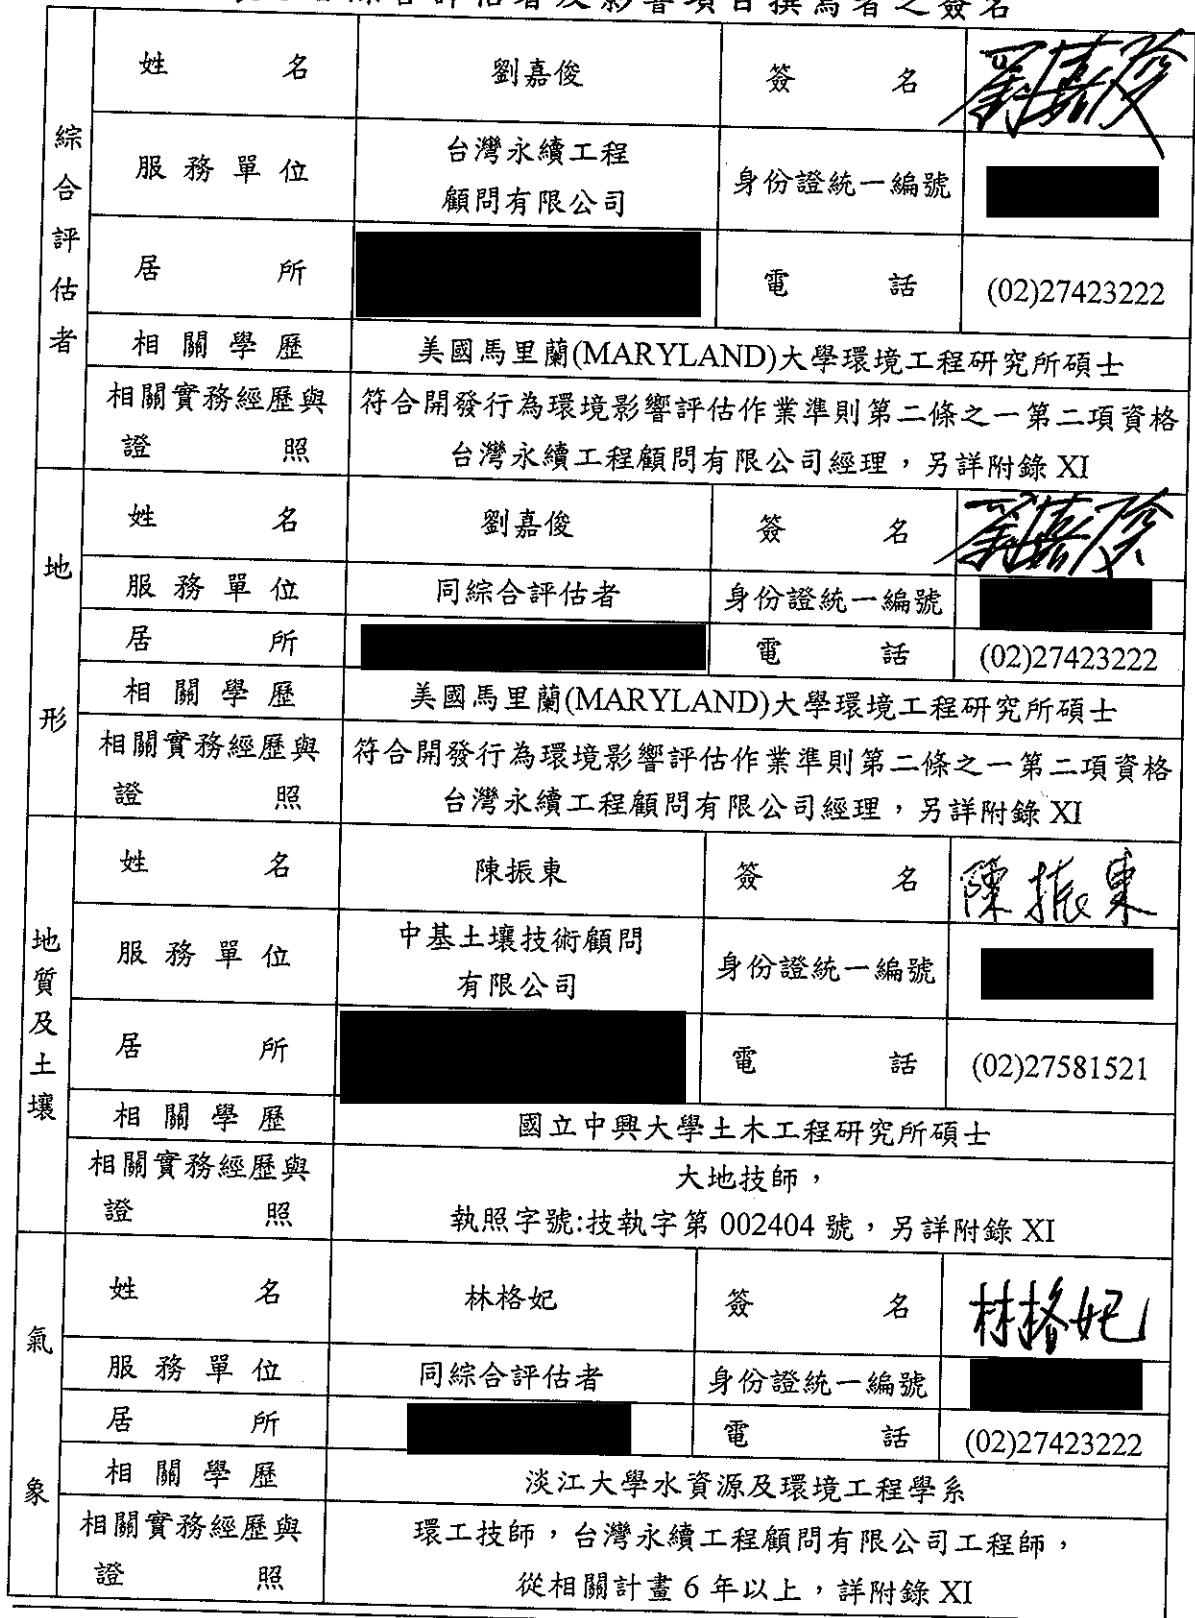 綜合評估者及影響項目撰寫者之簽名
綜合評估者
姓名 劉嘉俊 簽名 劉嘉俊
服務單位 台灣永續工程
顧問有限公司 身份證統一編號
居所 電話 (02)27423222
相關學歷 美國馬里蘭(MARYLAND)大學環境工程研究所碩士
相關實務經歷與 符合開發行為環境影響評估作業準則第二條之一第二項資格
證照 台灣永續工程顧問有限公司經理,另詳附錄 XI
地形
姓名 劉嘉俊 簽名 劉嘉俊
服務單位 同綜合評估者 身份證統一編號
居所 電話 (02)27423222
相關學歷 美國馬里蘭(MARYLAND)大學環境工程研究所碩士
相關實務經歷與 符合開發行為環境影響評估作業準則第二條之一第二項資格
證照 台灣永續工程顧問有限公司經理,另詳附錄 XI
地質及土壤
姓名 陳振東 簽名 陳振東
服務單位 中基土壤技術顧問
有限公司 身份證統一編號
居所 電話 (02)27581521
相關學歷 國立中興大學土木工程研究所碩士
相關實務經歷與 大地技師,
證照 執照字號:技執字第 002404 號,另詳附錄 XI
氣象
姓名 林格妃 簽名 林格妃
服務單位 同綜合評估者 身份證統一編號
居所 電話 (02)27423222
相關學歷 淡江大學水資源及環境工程學系
相關實務經歷與 環工技師,台灣永續工程顧問有限公司工程師,
證照 從相關計畫 6 年以上,詳附錄 XI